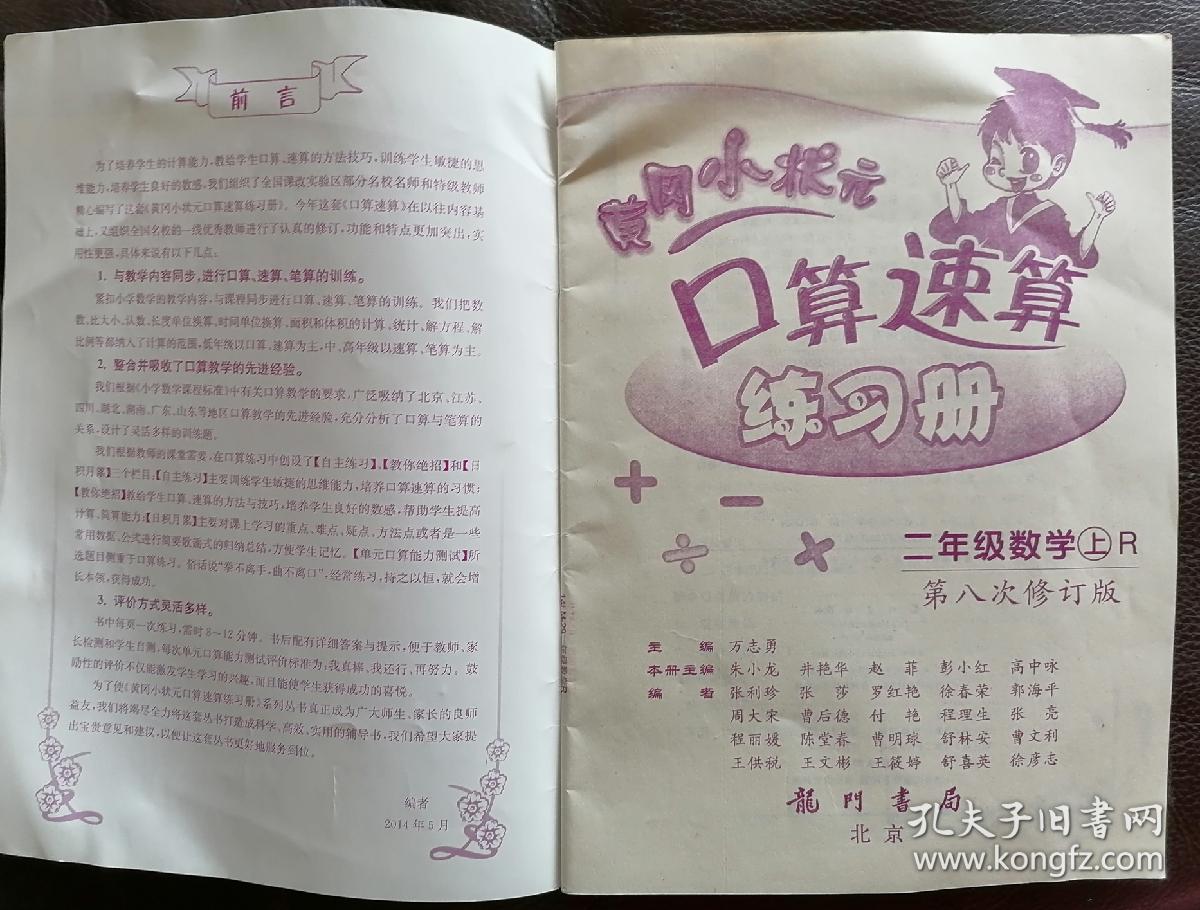 前言
为了培养学生的计算能力，教给学生口算、速算的方法技巧，训练学生敏捷的思
维能力，培养学生良好的数感，我们组织了全国课改实验区部分名校名师和特级教师
精心编写了这套《黄冈小状元口算速算练习册》。今年这套《口算速算》在以往内容基
础上，又组织全国名校的一线优秀教师进行了认真的修订，功能和特点更加突出，实
用性更强，具体来说有以下几点：
1. 与教学内容同步，进行口算、速算、笔算的训练。
紧扣小学数学的教学内容，与课程同步进行口算、速算、笔算的训练。我们把数
数、比大小、认数、长度单位换算、时间单位换算、面积和体积的计算、统计、解方程、解
比例等都纳入了计算的范围，低年级以口算、速算为主，中、高年级以速算、笔算为主。
2. 整合并吸收了口算教学的先进经验。
我们根据《小学数学课程标准》中有关口算教学的要求，广泛吸纳了北京、江苏、
四川、湖北、湖南、广东、山东等地区口算教学的先进经验，充分分析了口算与笔算的
关系，设计了灵活多样的训练题。
我们根据教师的课堂需要，在口算练习中创设了【自主练习】、【教你绝招】和【日
积月累】三个栏目。【自主练习】主要训练学生敏捷的思维能力，培养口算速算的习惯；
【教你绝招】教给学生口算、速算的方法与技巧，培养学生良好的数感，帮助学生提高
计算、简算能力；【日积月累】主要对课上学习的重点、难点、疑点、方法点或者是一些
常用数据、公式进行简要歌谣式的归纳总结，方便学生记忆。【单元口算能力测试】所
选题目侧重于口算练习。俗话说“拳不离手，曲不离口”，经常练习，持之以恒，就会增
长本领，获得成功。
3. 评价方式灵活多样。
书中每页一次练习，需时8～12分钟。书后配有详细答案与提示，便于教师、家
长检测和学生自测。每次单元口算能力测试评价标准为：我真棒、我还行、再努力。鼓
励性的评价不仅能激发学生学习的兴趣，而且能使学生获得成功的喜悦。
为了使《黄冈小状元口算速算练习册》系列丛书真正成为广大师生、家长的良师
益友，我们将竭尽全力将这套丛书打造成科学、高效、实用的辅导书，我们希望大家提
出宝贵意见和建议，以便让这套丛书更好地服务到位。
编者
2014年5月
黄冈小状元
口算速算
练习册
+ −
÷ ×
二年级数学上R
第八次修订版
主编 万志勇
本册主编 朱小龙 井艳华 赵菲 彭小红 高中咏
编者 张利珍 张莎 罗红艳 徐春荣 郭海平
周大宋 曹后德 付艳 程理生 张亮
程丽媛 陈堂春 曹明球 舒林安 曹文利
王供税 王文彬 王筱婷 舒喜英 徐彦志
龍門書局
北京
孔夫子旧书网
www.kongfz.com